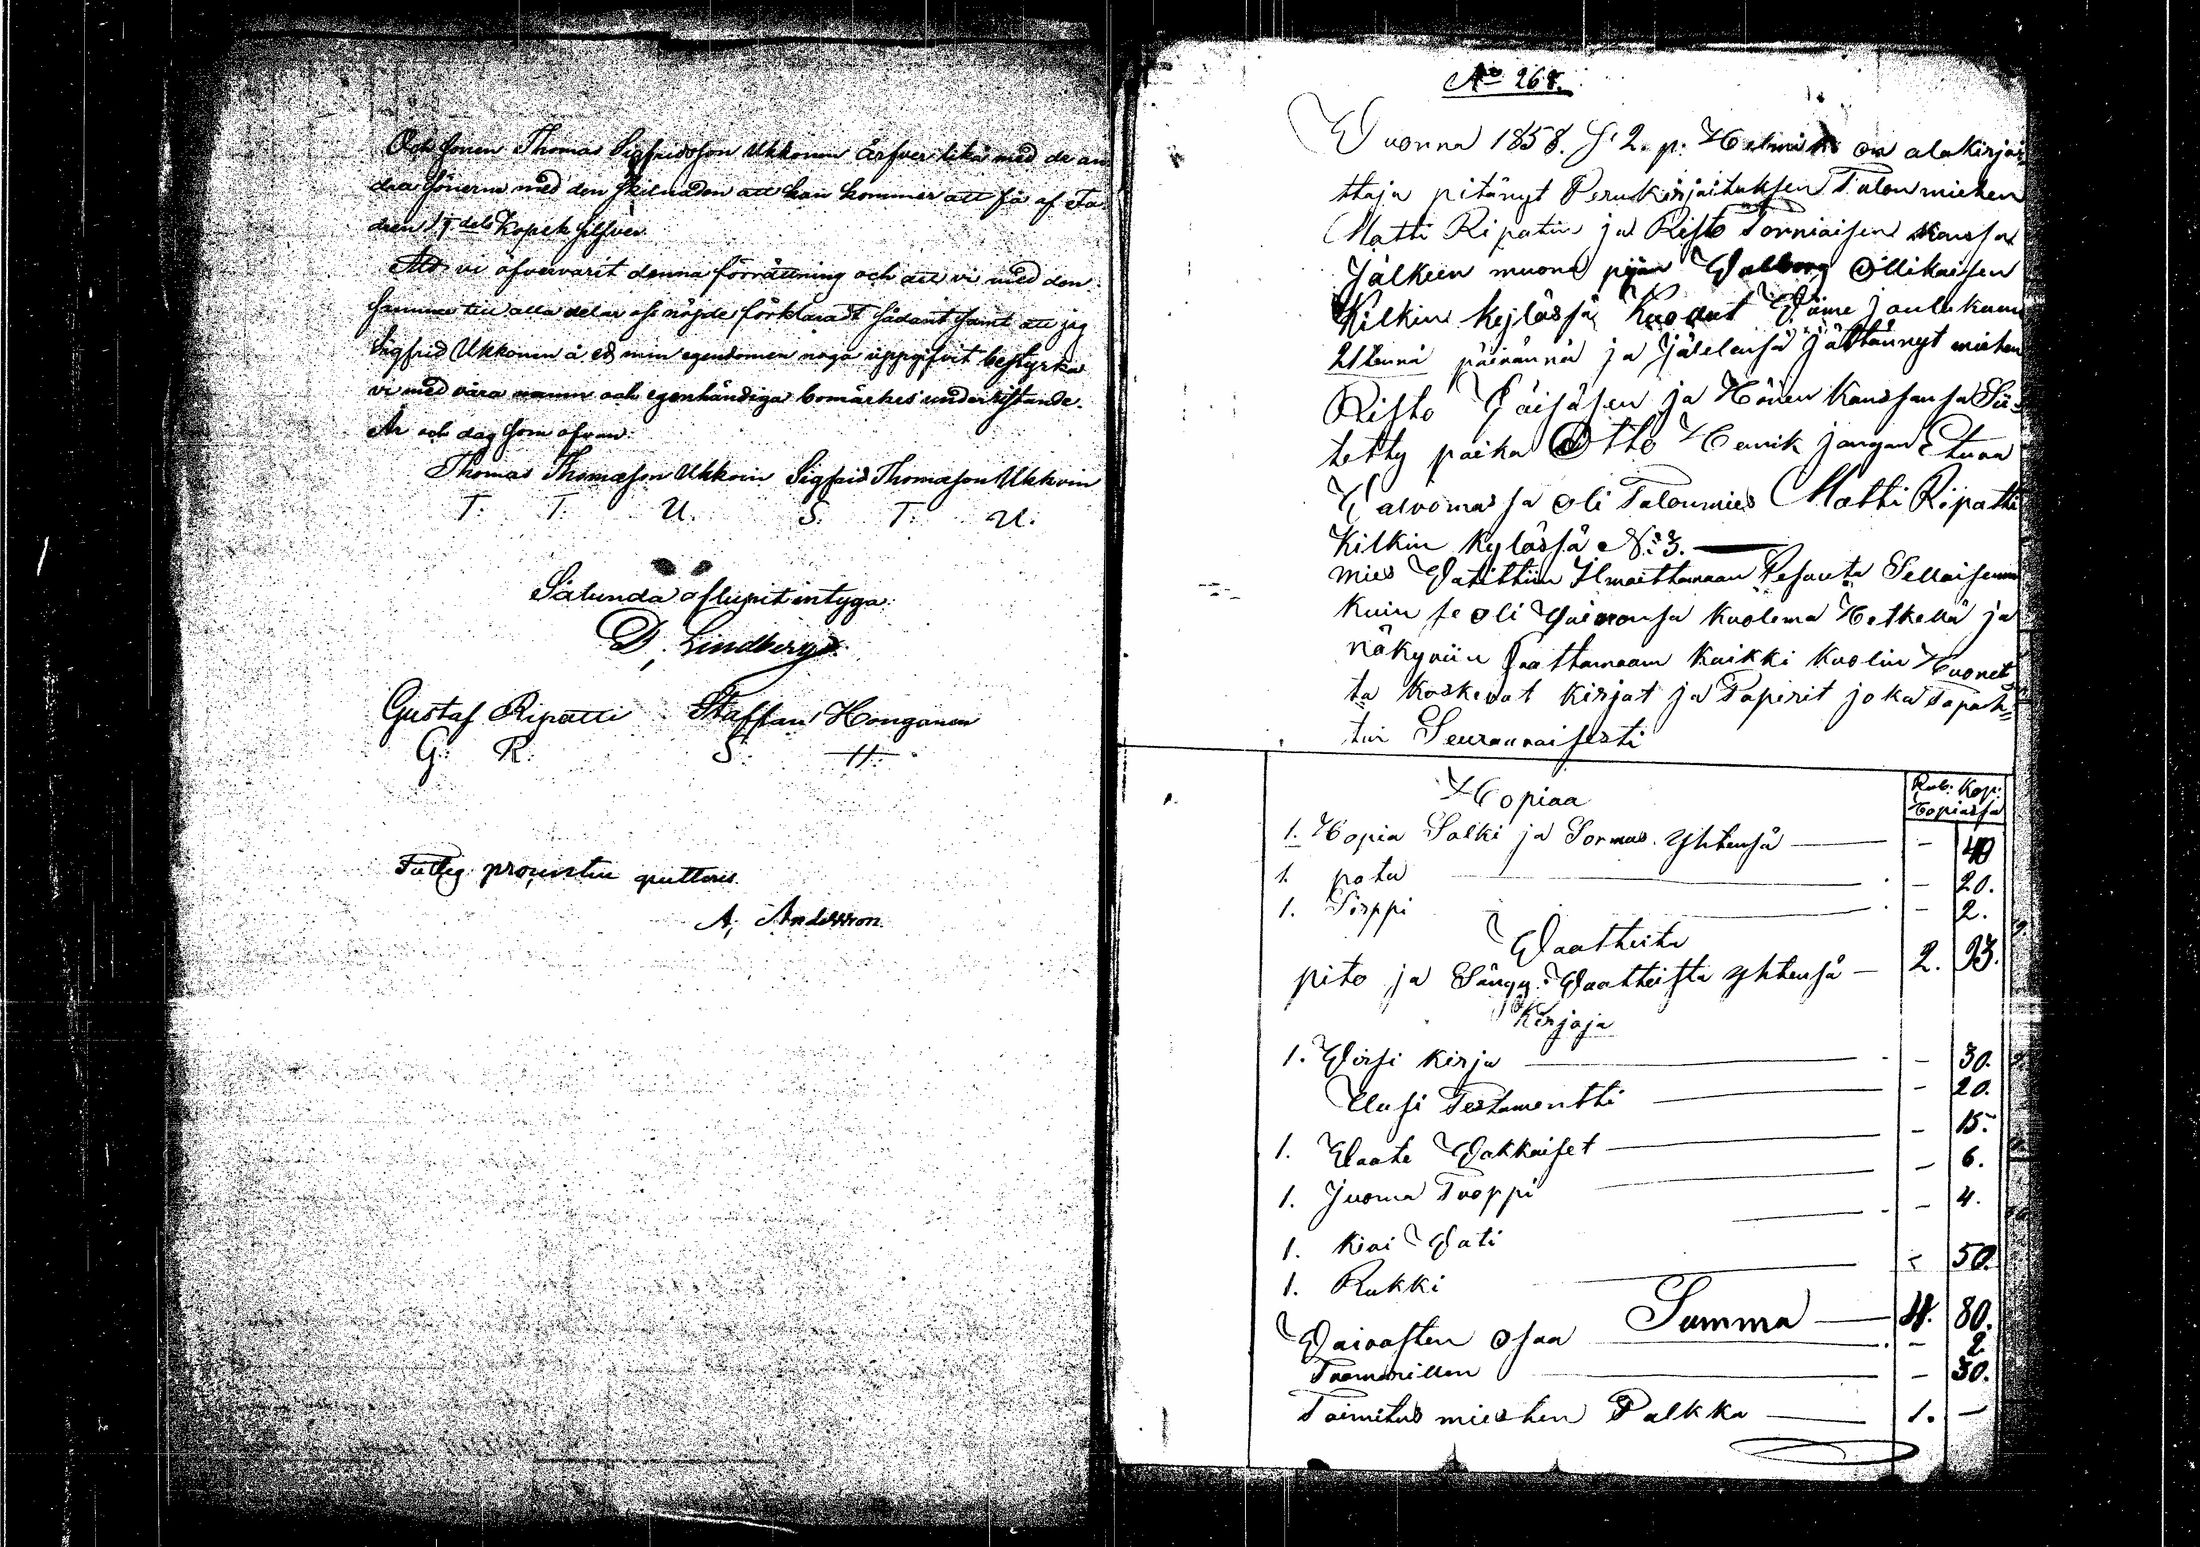 Och sonen Thomas Sigfridsson Ukkonen ärfver lika med de an
dra sönerne med den skilnaden att han kommer att få af Fa
dren kopek silfver.
Att vi öfvervarit denna förrättning och att vi med den
samma till alla delar äro nöjde förklarat sådant samt att jag
Sigfrid Ukkonen å ed min egendomen noga uppgifvit bestyrka
vi med våra namn och egenhändiga bomärkes undertistande.
År och dag som ofvan.
Thomas Thomasson Ukkoin Sigfrid Thomasson Ukkoin
T. T. U. S. T. U.
Sålunda aflupit intyga:
D. Lindberg
Gustaf Ripatti Staffan Honganen
G. R. S. H.
A. Andersson
No 268.
Wuonna 1858. S: 2. p. Helmik on alakirjoi
ttaja pitänyt Perukirjoituksen Talonmiehen
Matti Ripatin ja Risto Torniaisen kanssa
Jälkeen muona pijan Walborg Ollikaisen
Kilkin kylässä Kuollut Wiime joulukuun
21tenä päivännä ja jälelensä jättännyt miehen
Risto Päisäsen ja Hänen kanssansa Sii-
tetty poika Otto Henrik jongan Etuaa
Walvomassa oli Talonmies Matti Ripatti
Kilkin kylässä No: 3.
mies Vatittiin Ilmoittamaan Pesäntä Sellaisenna
kuin se oli Vaimonsa kuolema Hetkellä ja
näkyviin Saattamaan kaikki kuolin Huonet
ta koskevat kirjat ja Paperit joka Tapah=
tui Seuraavaisesti
Hopiaa
Rub: Kop:
Hopiassa
1. Hopia Solki ja Sormus yhtensä — - 40
1. pata — - 20.
1. Sirppi — - 2.
Waatteita
pito ja Sängy Waatteista yhtensä — 2. 93.
Kirjoja
1. Wirsi kirja — - 30.
Uusi Testamentti — - 20.
1. Waate Wakkaiset — - 15.
1. Juoma Tuoppi — - 6.
1. kivi Wati — - 4.
1. Rukki — - 50.
Summa — 4. 80.
Vaivasten osaa — - 2
Toomarillen — - 30.
Toimitus miesten Palkka — 1. —